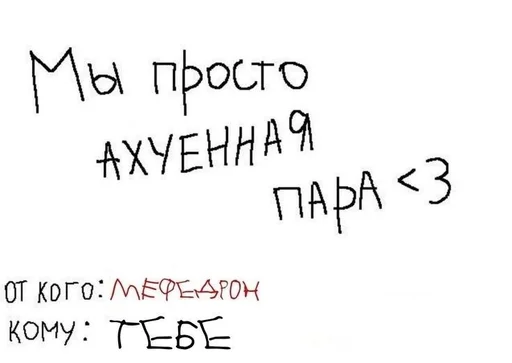 Мы просто
АХУЕННАЯ
ПАРА <3
ОТ КОГО: МЕФЕДРОН
КОМУ: ТЕБЕ